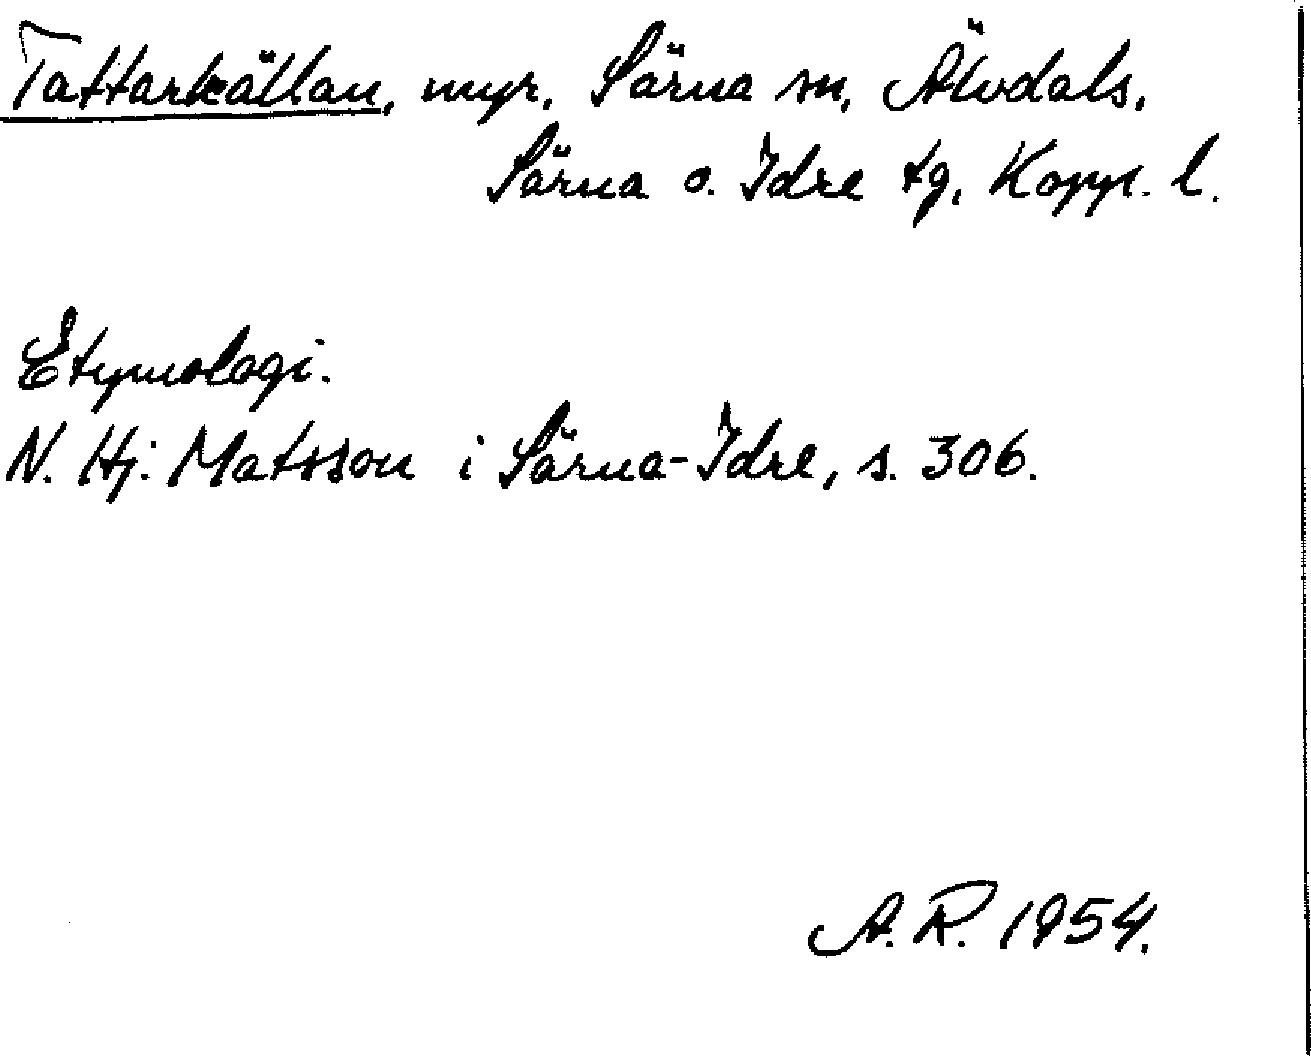 Tattarkällan, myr, Särna sn, Älvdals,
Särna o. Idre tg, Kopp. l.
Etymologi.
N. Hj. Matsson i Särna-Idre, s. 306.
A. R. 1954.